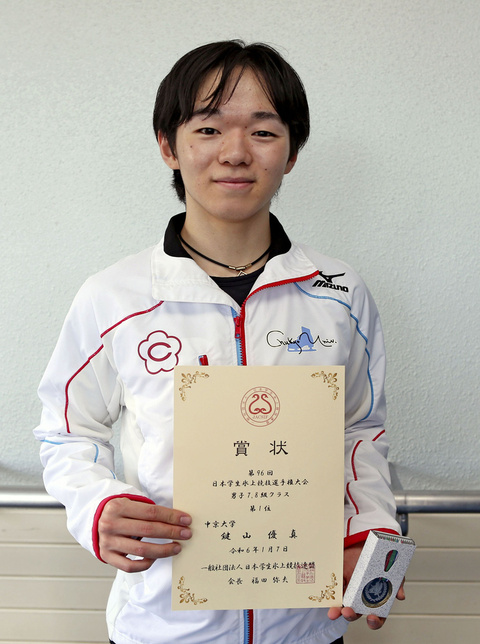 MIZUNO
Chukyo Univ.
C
賞状
第96回
日本学生氷上競技選手権大会
男子7,8級クラス
第1位
中京大学
鍵山優真
令和6年1月7日
一般社団法人日本学生氷上競技連盟
会長 福田弥夫